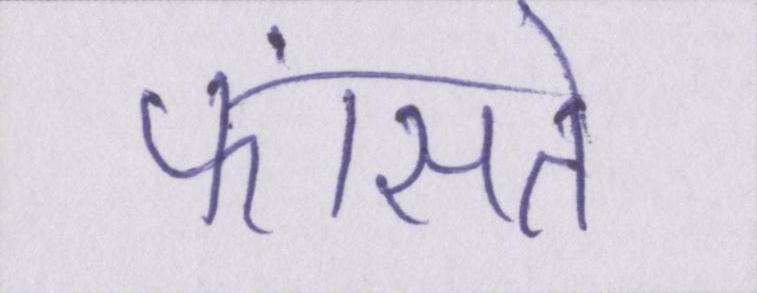 फांसते